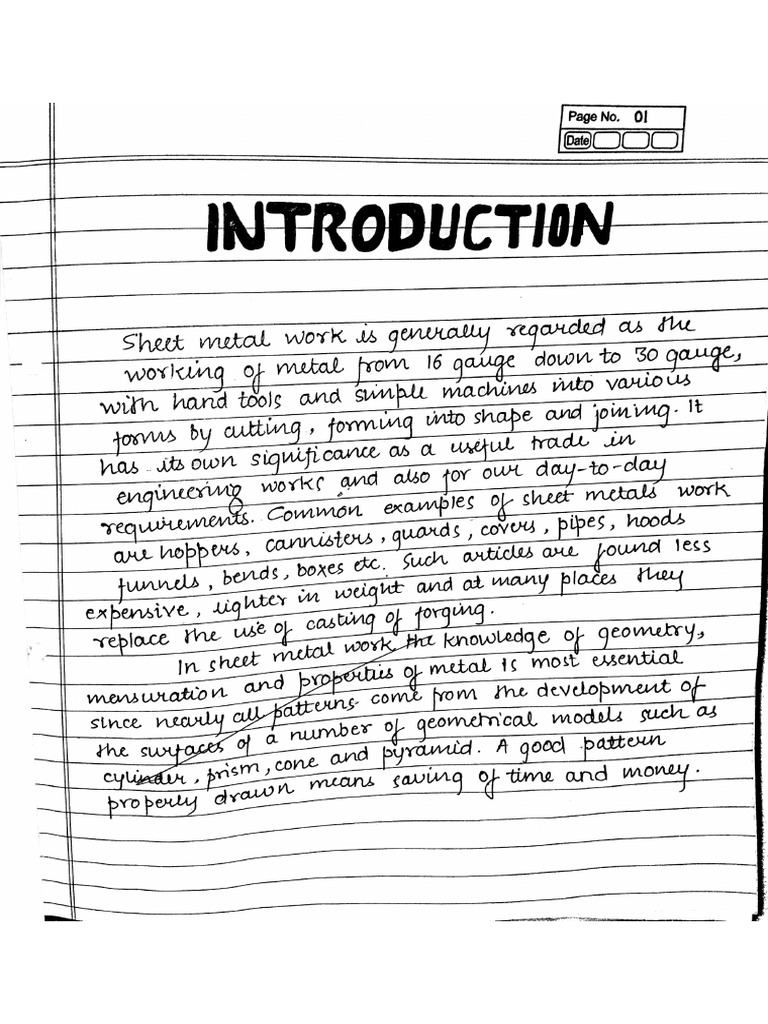 Page No. 01
Date
INTRODUCTION
Sheet metal work is generally regarded as the
working of metal from 16 gauge down to 30 gauge,
with hand tools and simple machines into various
forms by cutting, forming into shape and joining. It
has its own significance as a useful trade in
engineering works and also for our day-to-day
requirements. Common examples of sheet metals work
are hoppers, cannisters, guards, covers, pipes, hoods
funnels, bends, boxes etc. Such articles are found less
expensive, lighter in weight and at many places they
replace the use of casting of forging.
In sheet metal work the knowledge of geometry,
mensuration and properties of metal is most essential
since nearly all patterns come from the development of
the surfaces of a number of geometrical models such as
cylinder, prism, cone and pyramid. A good pattern
properly drawn means saving of time and money.